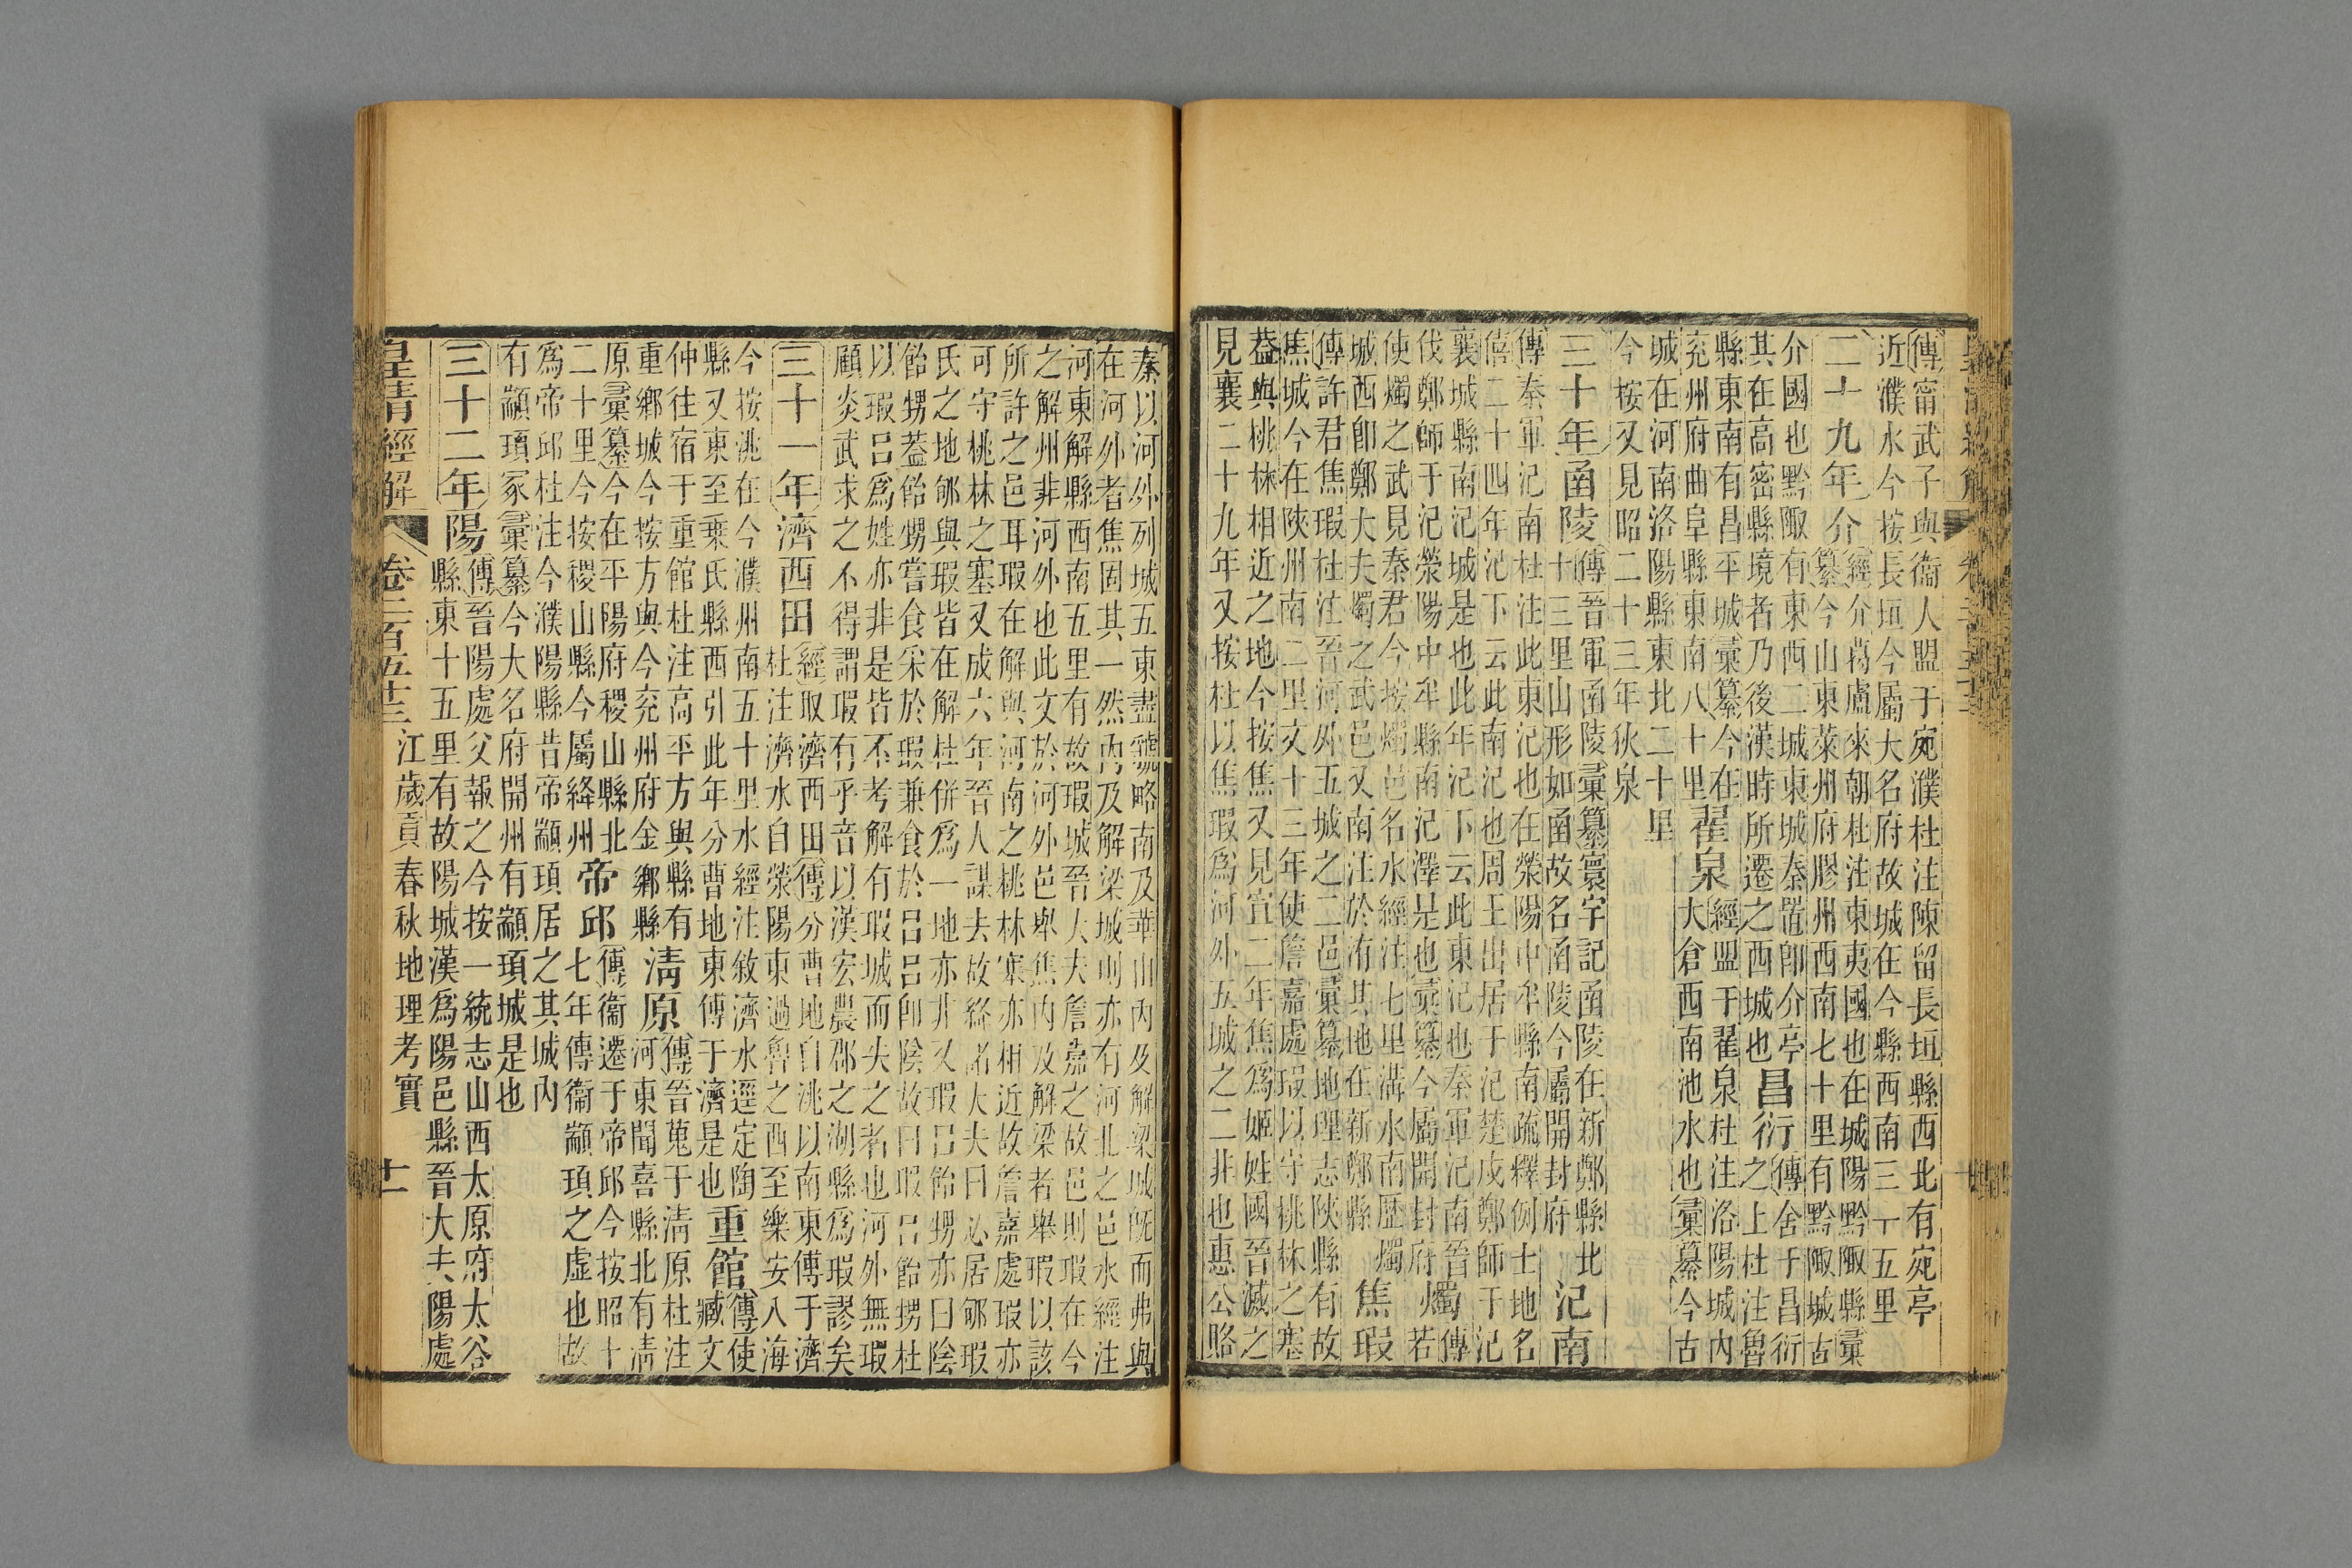 傳甯武子與衞人盟于宛濮杜注陳留長垣縣西北有宛亭
近濮水今按長垣今屬大名府故城在今縣西南三十五里
二十九年介經介葛盧來朝杜注東夷國也在城陽黔陬縣彚
纂今山東萊州府膠州西南七十里有黔陬城古
介國也黔陬有東西二城東城秦置卽介亭
其在高密縣境者乃後漢時所遷之西城也昌衍傳舍于昌衍
之上杜注魯
縣東南有昌平城彚纂今在
兖州府曲阜縣東南八十里翟泉經盟于翟泉杜注洛陽城內
大倉西南池水也彚纂今古
城在河南洛陽縣東北二十里
今按又見昭二十三年狄泉
三十年函陵傳晉軍函陵彚纂寰宇記函陵在新鄭縣北
十三里山形如函故名函陵今屬開封府氾南
傳秦軍氾南杜注此東氾也在滎陽中牟縣南疏釋例土地名
僖二十四年氾下云此南氾也周王出居于氾楚戍鄭師于氾
襄城縣南氾城是也此年氾下云此東氾也秦軍氾南晉
伐鄭師于氾滎陽中牟縣南氾澤是也彚纂今屬開封府燭傳
若
使燭之武見秦君今按燭邑名水經注七里溝水南歷燭
城西卽鄭大夫燭之武邑又南注於洧其地在新鄭縣焦瑕
傳許君焦瑕杜注晉河外五城之二邑彚纂地理志陝縣有故
焦城今在陝州南二里文十三年使詹嘉處瑕以守桃林之塞
葢與桃林相近之地今按焦又見宣二年焦爲姬姓國晉滅之
見襄二十九年又按杜以焦瑕爲河外五城之二非也惠公賂
秦以河外列城五東盡虢略南及華山內及解梁城既而弗與
在河外者焦固其一然內及解梁城則亦有河北之邑水經注
河東解縣西南五里有故瑕城晉大夫詹嘉之故邑則瑕在今
之解州非河外也此文於河外邑舉焦內及解梁者舉瑕以該
所許之邑耳瑕在解與河南之桃林塞亦相近故詹嘉處瑕亦
可守桃林之塞又成六年晉人謀去故絳諸大夫曰必居郇瑕
氏之地郇與瑕皆在解杜併爲一地亦非又瑕呂飴甥亦曰陰
飴甥葢飴甥嘗食采於瑕兼食於呂呂卽陰故曰瑕呂飴甥杜
以瑕呂爲姓亦非是皆不考解有瑕城而失之者也河外無瑕
顧炎武求之不得謂瑕有乎音以漢宏農郡之湖縣爲瑕謬矣
三十一年濟西田經取濟西田傳分曹地自洮以南東傳于濟
杜注濟水自滎陽東過魯之西至樂安入海
今按洮在今濮州南五十里水經注敘濟水逕定陶
縣又東至乗氏縣西引此年分曹地東傳于濟是也重館傳使
臧文
仲往宿于重館杜注高平方與縣有
重鄉城今按方與今兖州府金鄉縣淸原傳晉蒐于淸原杜注
河東聞喜縣北有淸
原彚纂今在平陽府稷山縣北
二十里今按稷山縣今屬絳州帝邱傳衞遷于帝邱今按昭十
七年傳衞顓頊之虛也故
爲帝邱杜注今濮陽縣昔帝顓頊居之其城內
有顓頊冢彚纂今大名府開州有顓頊城是也
三十二年陽傳晉陽處父報之今按一統志山西太原府太谷
縣東十五里有故陽城漢爲陽邑縣晉大夫陽處
皇清經解 卷二百五十三 江歲貢春秋地理考實 十一